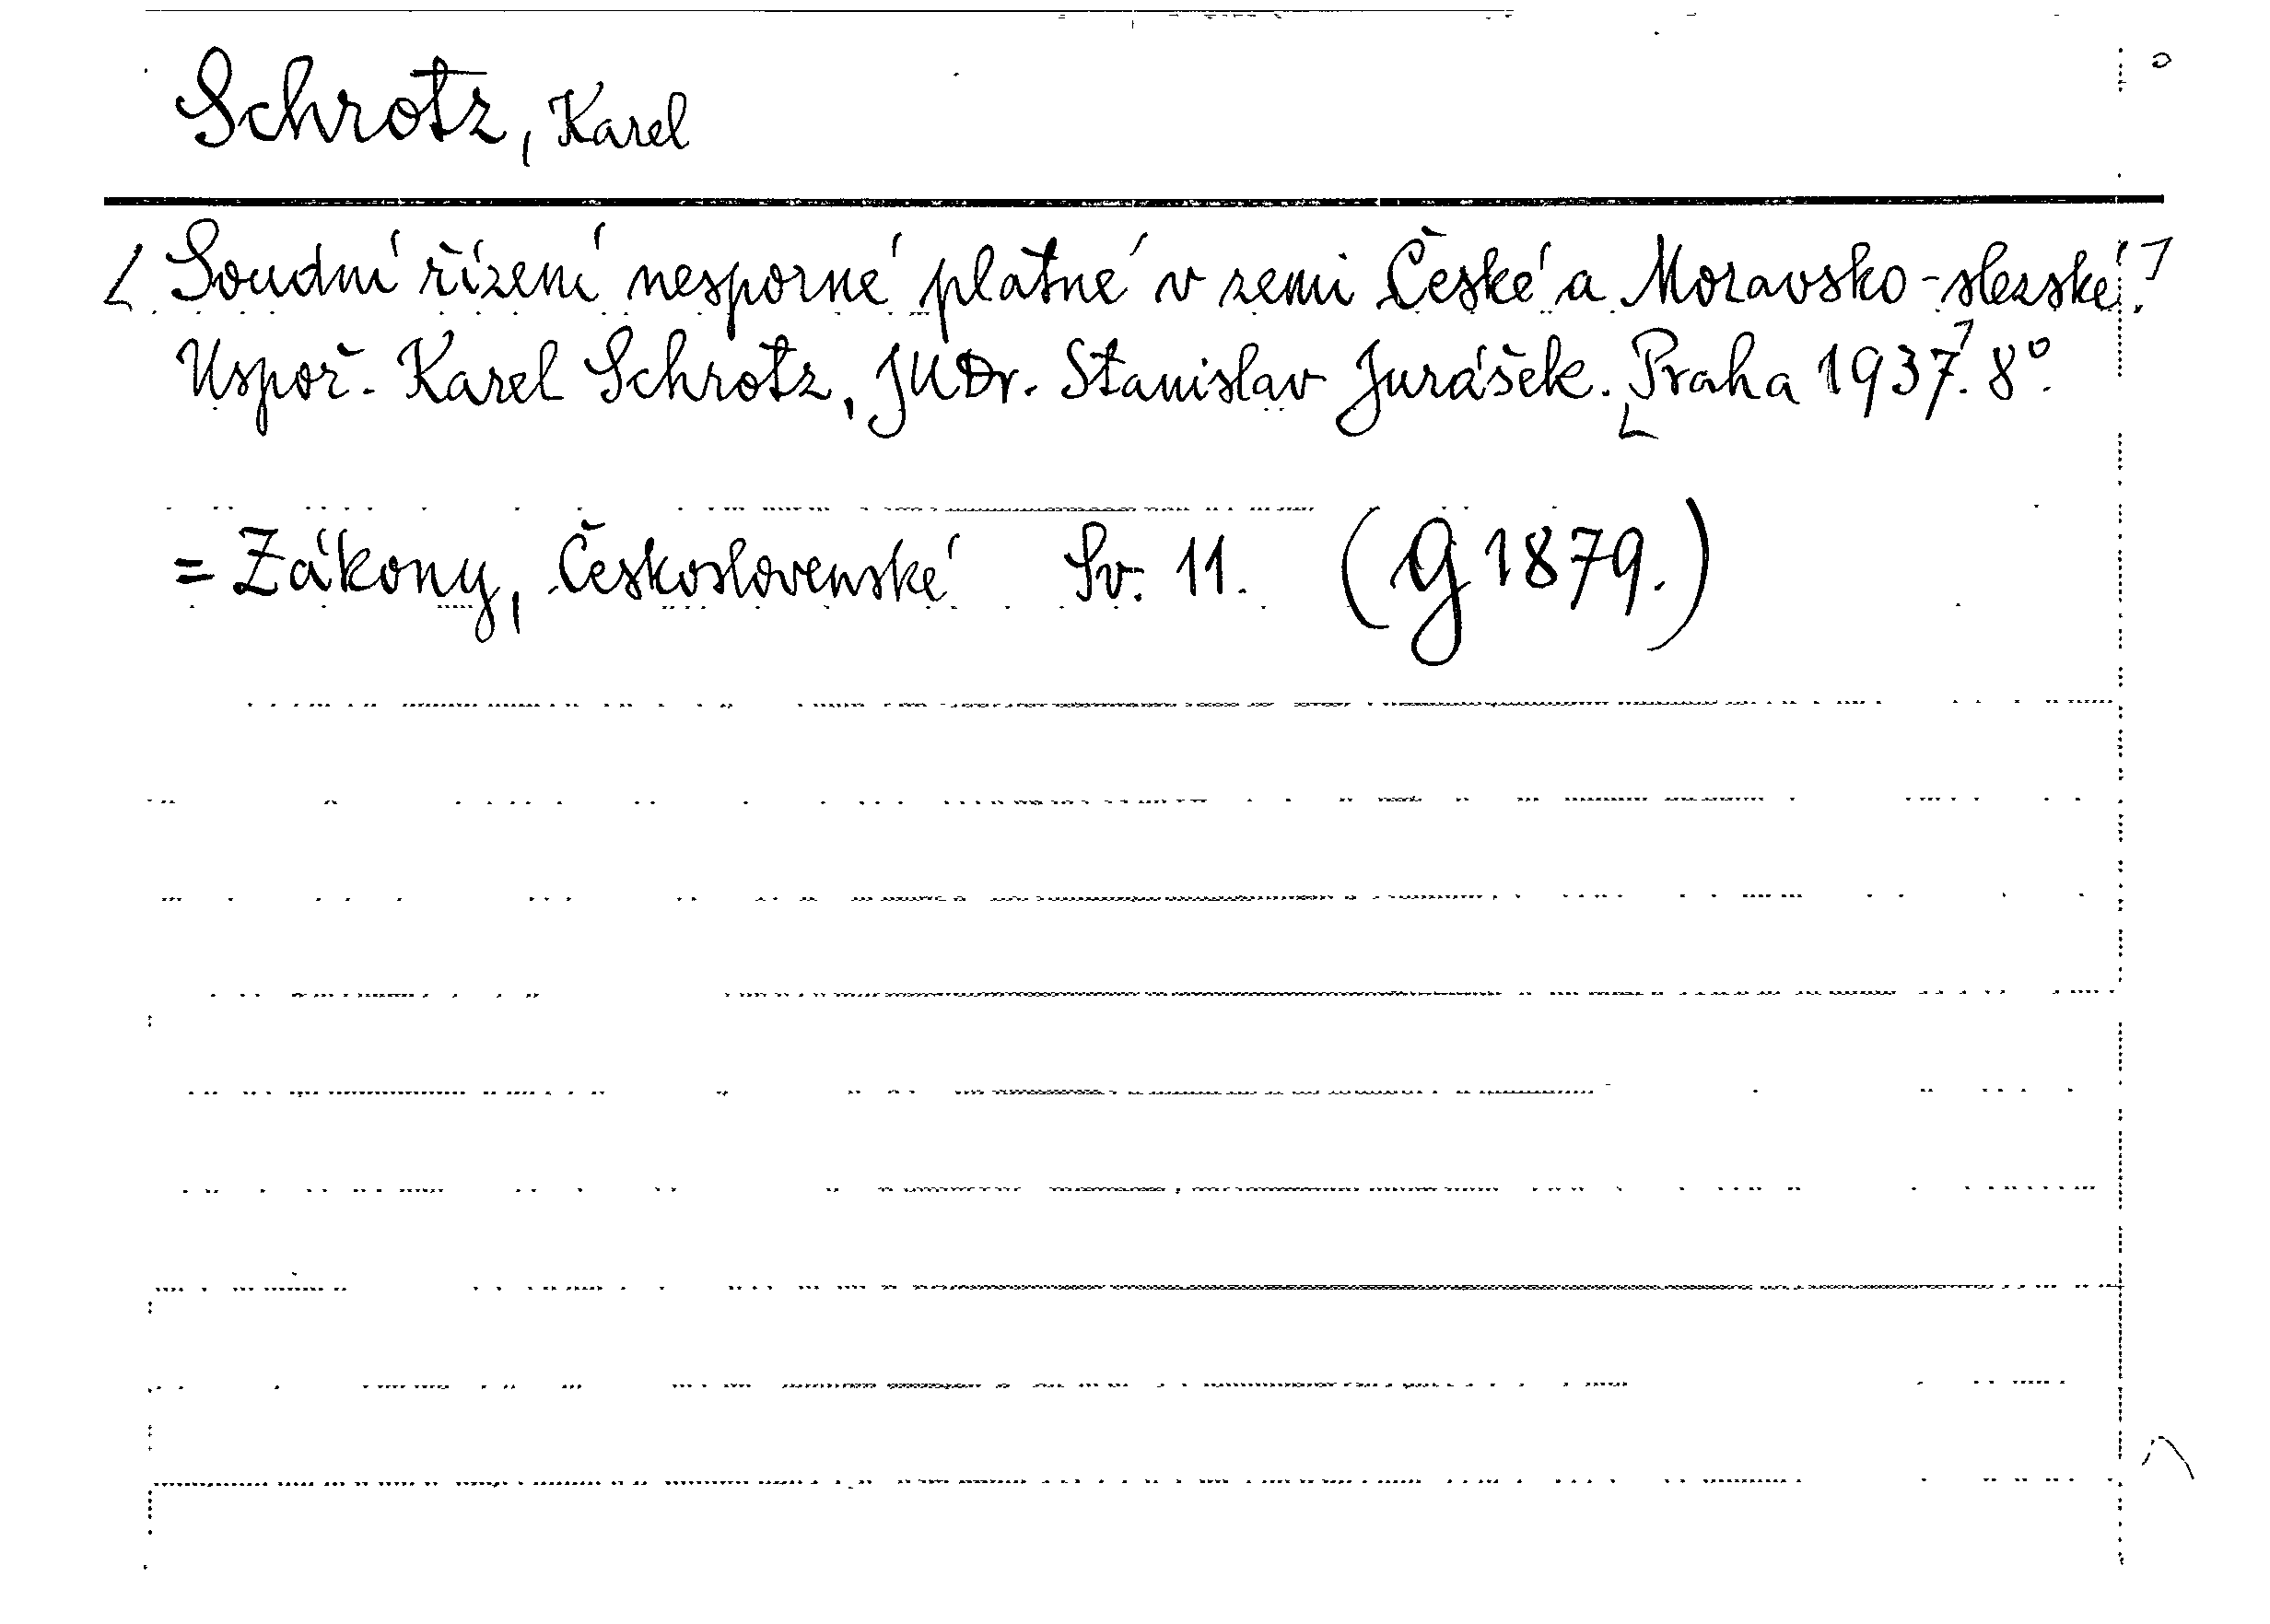 Schrotz, Karel
[Soudní řízení nesporné platné v zemi České a Moravsko-slezské.]
Uspoř. Karel Schrotz, JUDr. Stanislav Jurášek. [Praha 1937]. 8°.
= Zákony, Československé Sv. 11. (G 1879.)